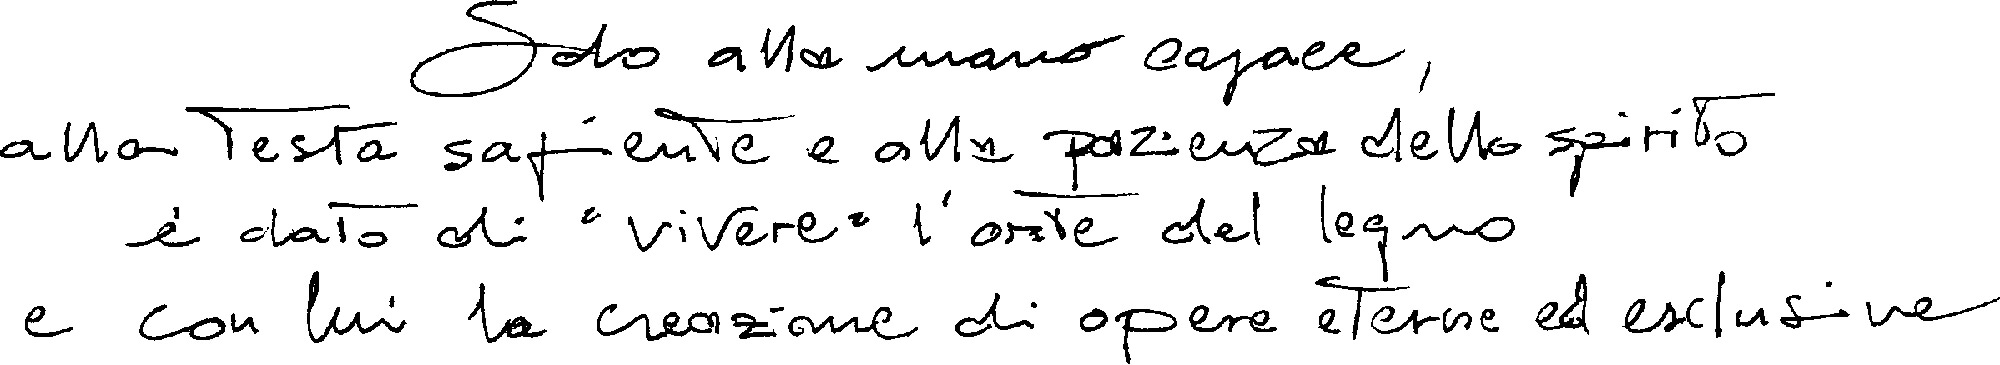 Solo alla mano capace,
alla testa sapiente e alla pazienza dello spirito
è dato di "vivere" l'arte del legno
e con lui la creazione di opere eterne ed esclusive